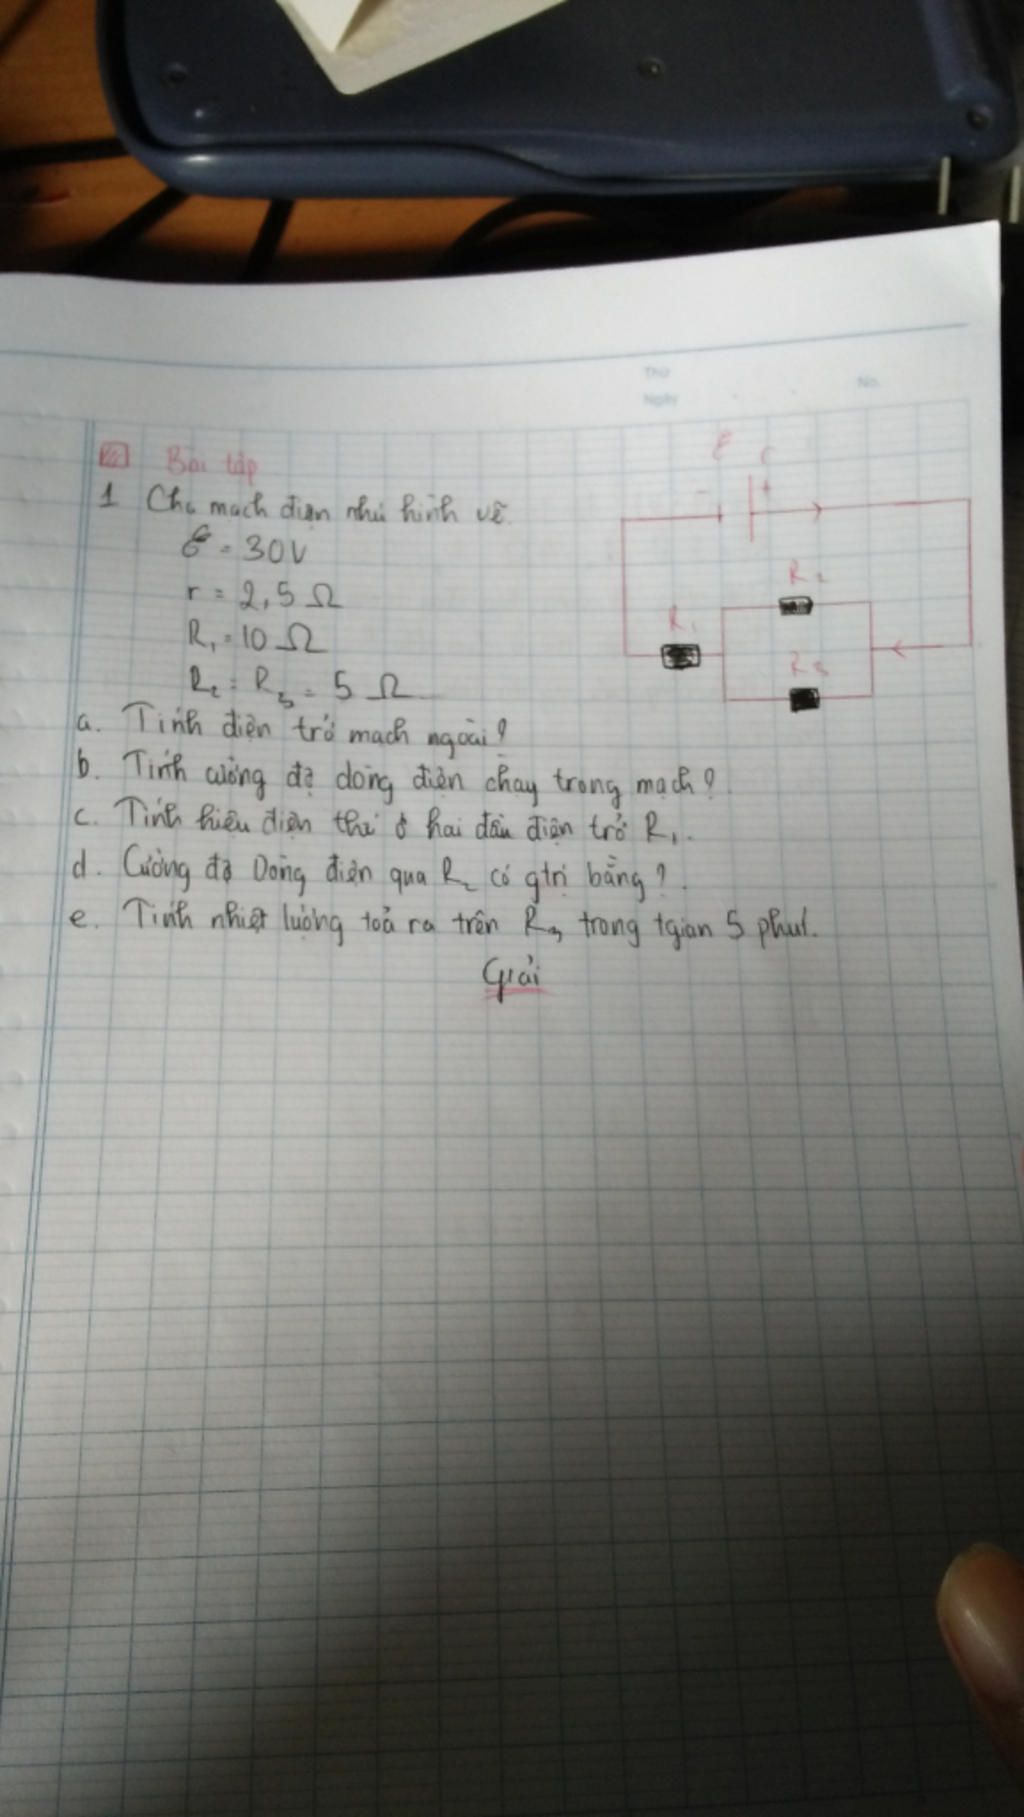 Thứ
Ngày
No.
Bài tập
1 Cho mạch điện như hình vẽ.
ℰ = 30V
r = 2,5 Ω
R₁ = 10 Ω
R₂ = R₃ = 5 Ω
ℰ r
- +
R₂
R₁
R₃
a. Tính điện trở mạch ngoài?
b. Tính cường độ dòng điện chạy trong mạch?
c. Tính hiệu điện thế ở hai đầu điện trở R₁.
d. Cường độ Dòng điện qua R₂ có gtrị bằng?.
e. Tính nhiệt lượng toả ra trên R₃ trong tgian 5 phút.
Giải